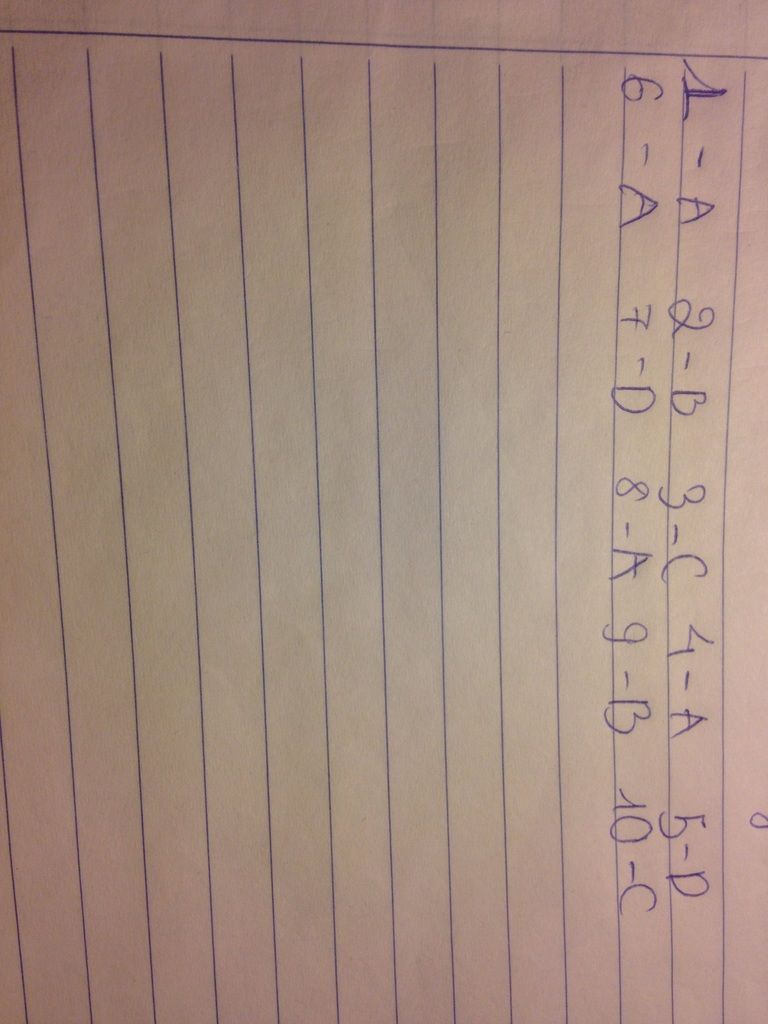 1 - A 2 - B 3 - C 4 - A 5 - D
6 - A 7 - D 8 - A 9 - B 10 - C